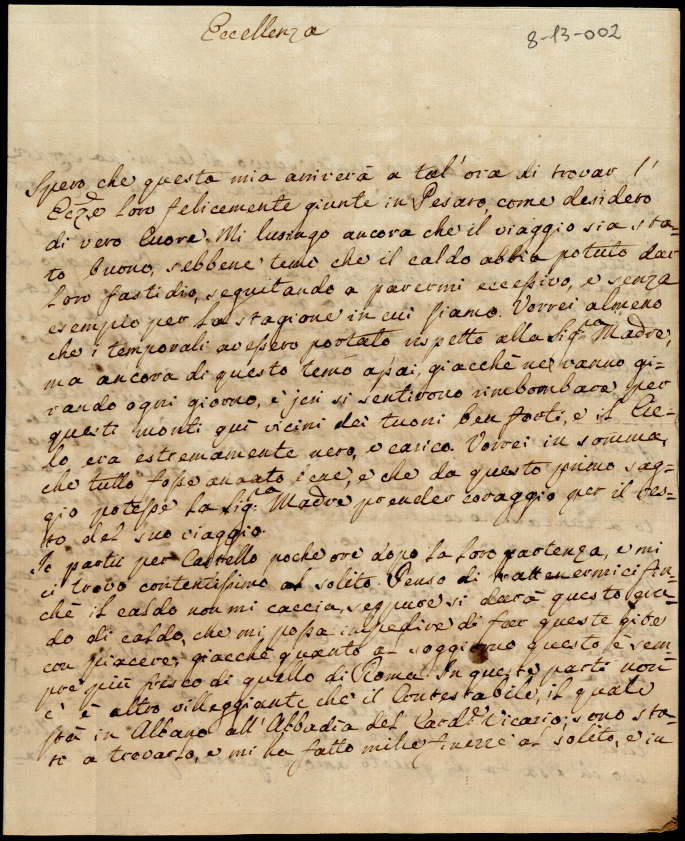 Eccellenza
8-13-002
Spero che questa mia arriverà a tal'ora di trovar l'
Ecz.e loro felicemente giunte in Pesaro, come desidero
di vero Cuore. Mi lusingo ancora che il viaggio sia sta=
to buono, sebbene temo che il caldo abbia potuto dar
loro fastidio, seguitando a parermi eccessivo, e senza
esempio per la stagione in cui siamo. Vorrei almeno
che i temporali avessero portato rispetto alla Sig.ra Madre,
ma ancora di questo temo assai, giacchè ne vanno gi=
rando ogni giorno, e jeri si sentirono rimbombare per
questi monti quì vicini dei tuoni ben forti, e il Cie=
lo, era estremamente nero, e carico. Vorrei in somma,
che tutto fosse andato bene, e che da questo primo sag=
gio potesse la Sig.ra Madre prender coraggio per il res=
to del suo viaggio.
Io partii per Castello poche ore dopo la loro partenza, e mi
ci trovo contentissimo al solito. Penso di trattenermici fin=
chè il caldo non mi caccia, seppure si darà questo gra=
do di caldo, che mi possa impedire di far queste gite
con piacere, giacchè quanto al soggiorno questo è sem
pre più fresco di quello di Roma. In queste parti non
c' è altro villeggiante che il Contestabile, il quale
stà in Albano all'Abbadia del Card.e Vicario; sono sta=
to a trovarlo, e mi ha fatto mille finezze al solito, e in